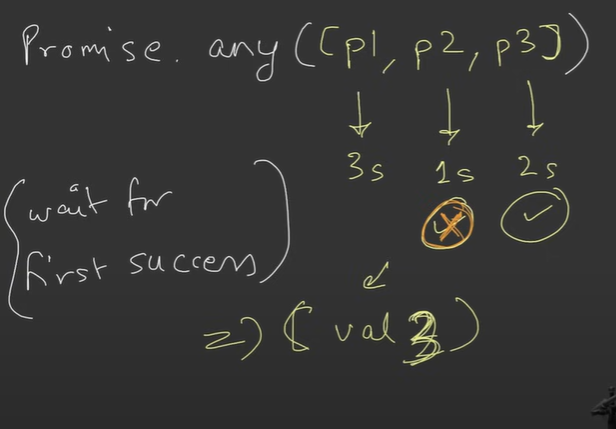 Promise. any([p1, p2, p3])
3s 1s 2s
wait for
first success
=> (val3)